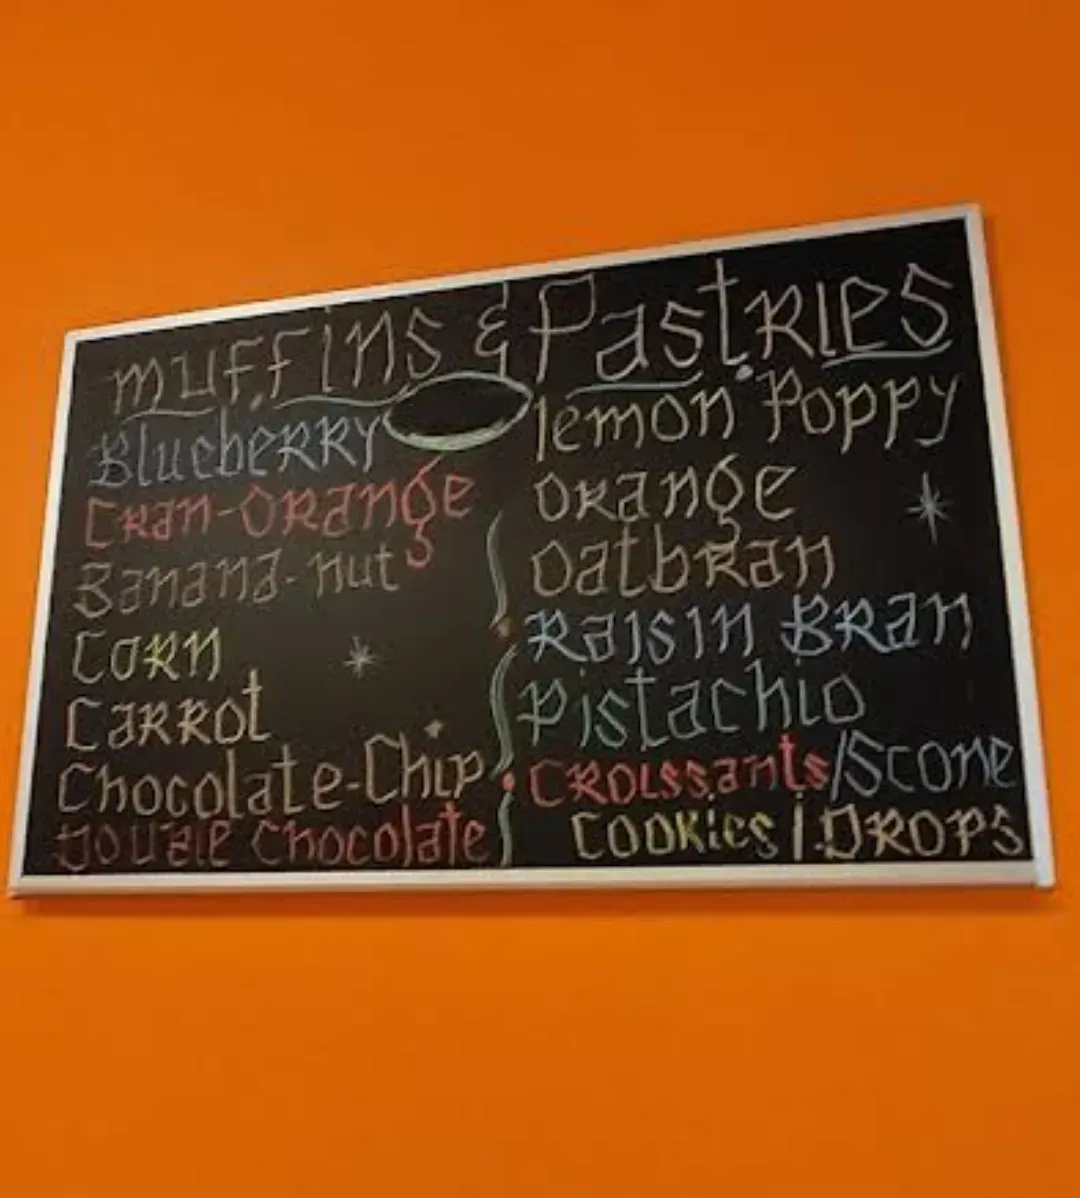 muffins & Pastries
Blueberry
Cran-Orange
Banana-nut
Corn
Carrot
Chocolate-Chip
Double Chocolate
lemon Poppy
Orange
Oatbran
Raisin Bran
Pistachio
Croissants/Scone
Cookies | Drops